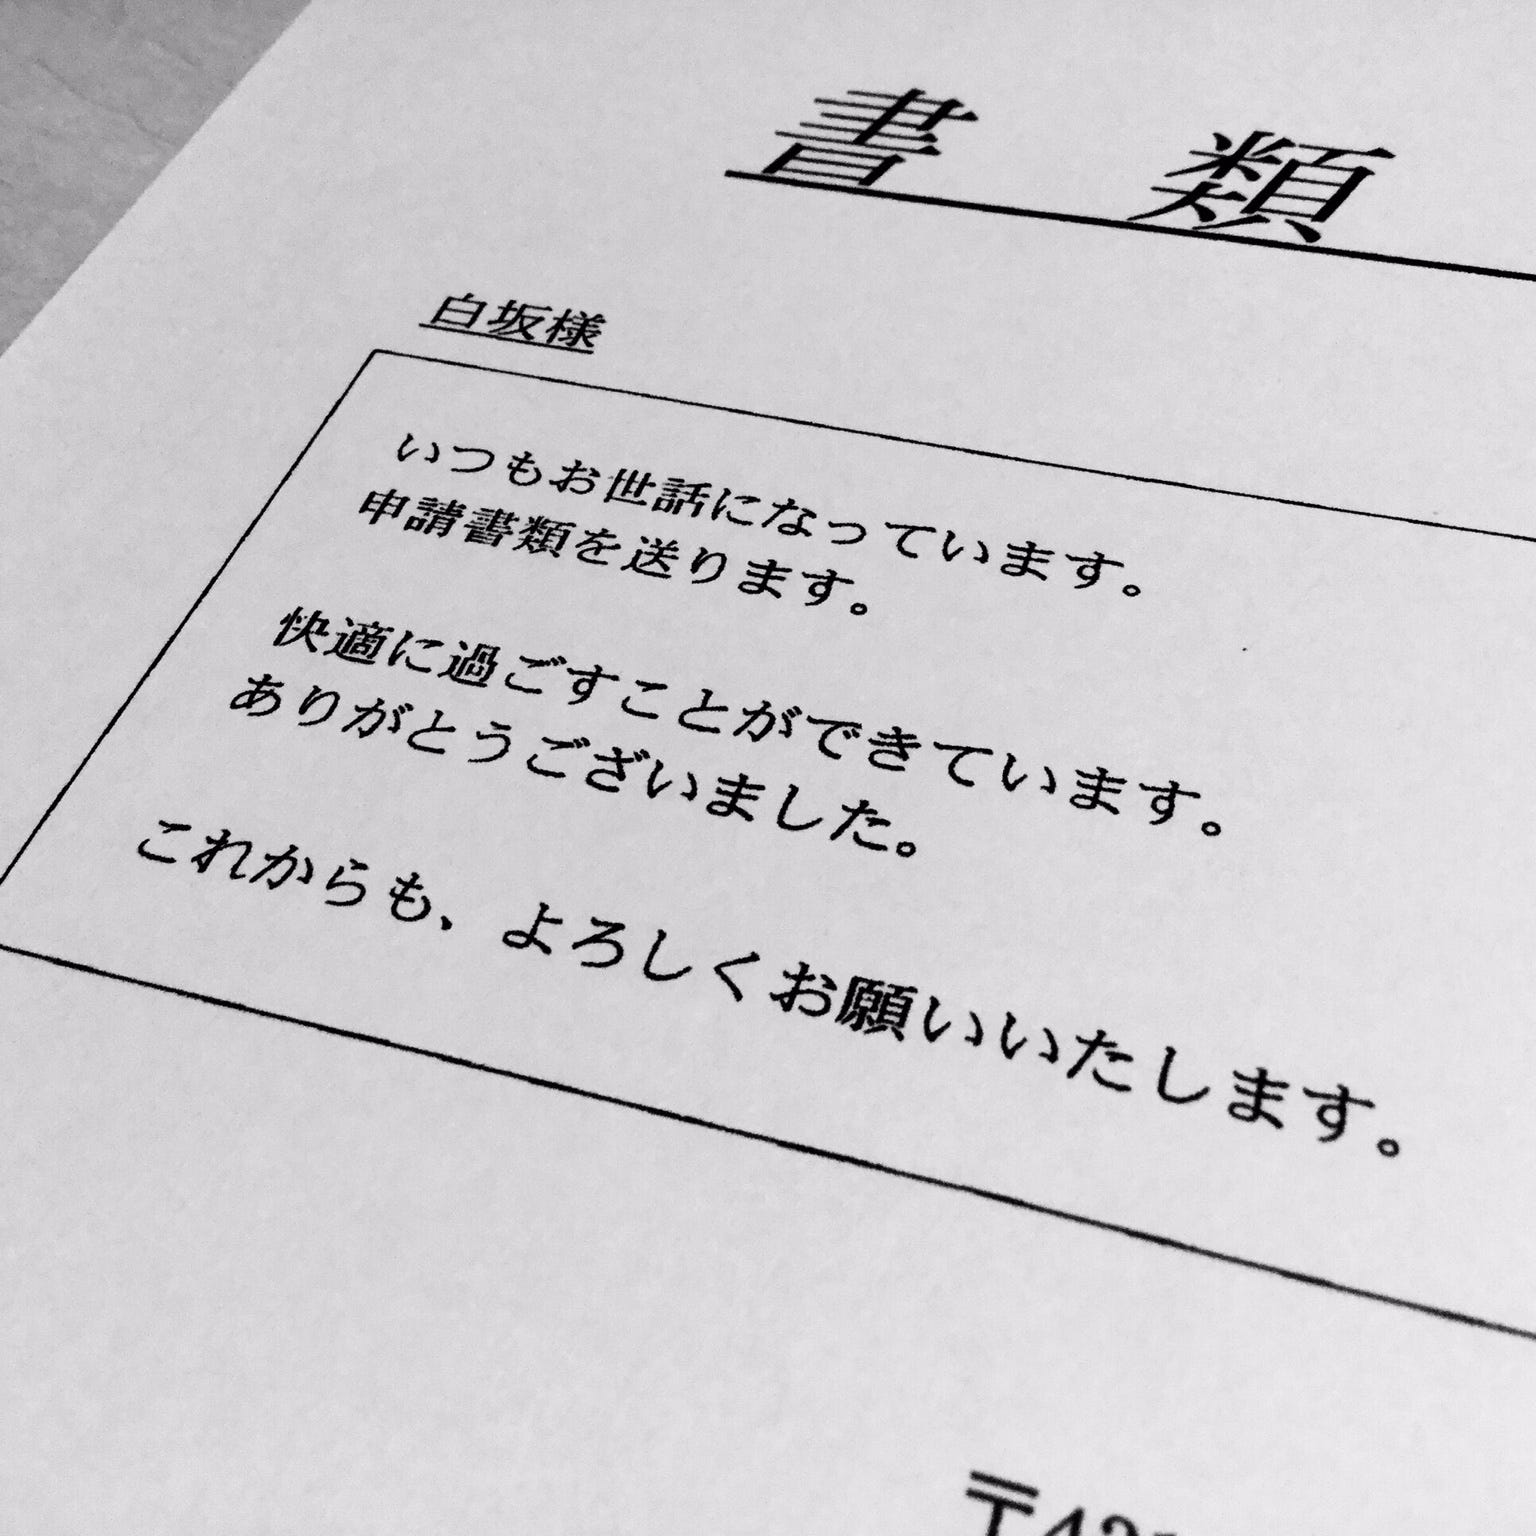 書 類
白坂様
いつもお世話になっています。
申請書類を送ります。
快適に過ごすことができています。
ありがとうございました。
これからも、よろしくお願いいたします。
〒42